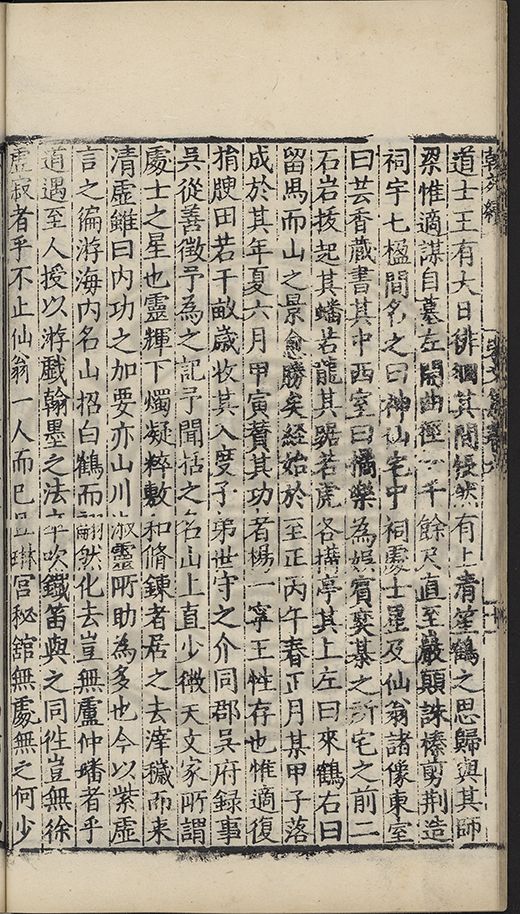 道士王有大日徘徊其間悵然有上清笙鶴之思歸與其師
梁惟適謀自墓左闢幽徑千餘尺直至巖顛誅榛剪荆造
祠宇七楹間名之曰神仙宅中祠處士星及仙翁諸像東室
曰芸香蔵書其中西室曰橘樂為娯賓奕棊之所宅之前二
石岩拔起其蟠若龍其踞若虎各搆亭其上左曰來鶴右曰
留馬而山之景愈勝矣経始於至正丙午春正月某甲子落
成於其年夏六月甲寅賛其功者楊一寧王性存也惟適復
捐腴田若干畝歲收其入度子弟世守之介同郡吳府録事
吳從善徵予為之記予聞括之名山上直少微天文家所謂
處士之星也靈輝下燭凝粹敷和脩鍊者居之去滓穢而来
清虚雖曰内功之加要亦山川淑靈所助為多也今以紫虚
言之徧游海内名山招白鶴而翩然化去豈無盧仲璠者乎
道遇至人授以游戲翰墨之法卒吹鐵笛與之同徃豈無徐
虚叔者乎不止仙翁一人而已且琳宫秘舘無處無之何少